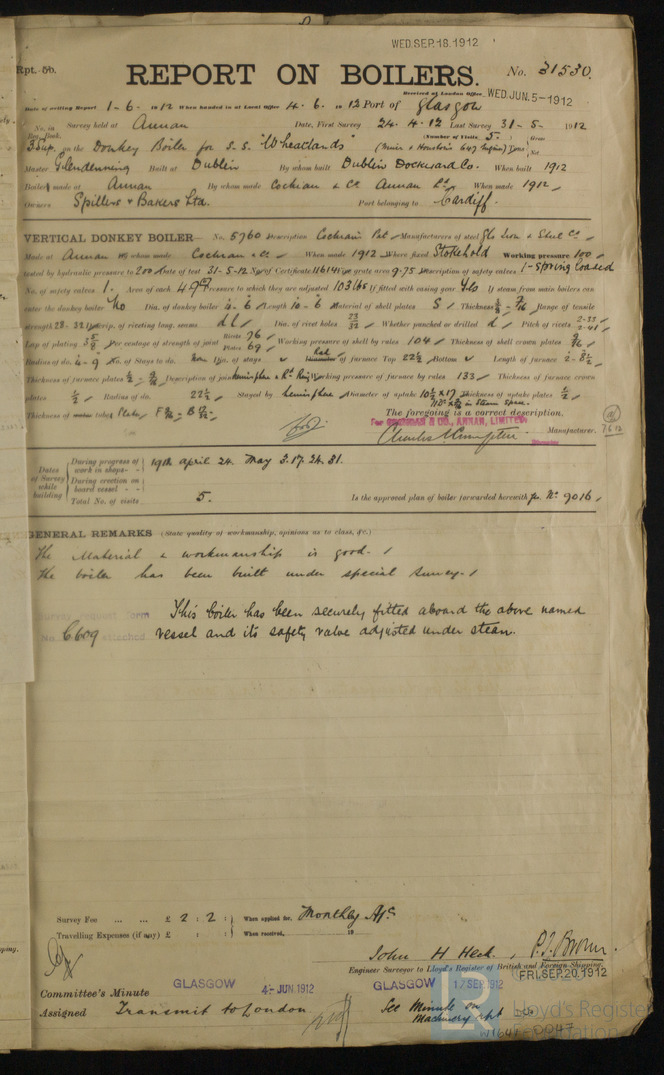 WED. SEP. 18. 1912
Rpt. 5b.
REPORT ON BOILERS.
No. 31530.
Received at London Office WED. JUN. 5-1912
Date of writing Report 1-6- 1912 When handed in at Local Office 4. 6. 1912 Port of Glasgow
No. in Reg. Book. Survey held at Annan Date, First Survey 24. 4. 12 Last Survey 31-5- 1912
35 up. on the Donkey Boiler for S.S. "Wheatlands" (Number of Visits 5.)
Master Glendenning Built at Dublin By whom built Dublin Dockyard Co. When built 1912
Boiler made at Annan By whom made Cochran & Co. Annan Ld. When made 1912
Owners Spillers & Bakers Ltd. Port belonging to Cardiff.
VERTICAL DONKEY BOILER No. 5760 Description Cochran Pat Manufacturers of steel Gls Iron & Steel Co
Made at Annan By whom made Cochran & Co. When made 1912 Where fixed Stokehold Working pressure 100
tested by hydraulic pressure to 200 Date of test 31-5-12 No. of Certificate 11614 Fire grate area 9.75 Description of safety valves 1-Spring Loaded
No. of safety valves 1. Area of each 4.9 Pressure to which they are adjusted 103 lbs If fitted with easing gear Yes If steam from main boilers can
enter the donkey boiler No Dia. of donkey boiler Length Material of shell plates S Thickness Range of tensile
strength 28-32 Descrip. of riveting long. seams d l Dia. of rivet holes 23/32 Whether punched or drilled d Pitch of rivets
Lap of plating Per centage of strength of joint Rivets 76 Plates 69 Working pressure of shell by rules 104 Thickness of shell crown plates
Radius of do. 4-9 No. of Stays to do. Dia. of stays of furnace Top 22½ Bottom Length of furnace
Thickness of furnace plates Description of joint Working pressure of furnace by rules 133 Thickness of furnace crown
plates ½ Radius of do. 22½ Stayed by hemisphere Diameter of uptake 10½ x 17 Thickness of uptake plates ½
Thickness of tube Plates
The foregoing is a correct description.
For COCHRAN & CO., ANNAN, LIMITED.
Manufacturer.
Dates of Survey while building
During progress of work in shops - - 19th april 24. May 3. 17. 24. 31.
During erection on board vessel - -
Total No. of visits 5. Is the approved plan of boiler forwarded herewith No. 9016
GENERAL REMARKS (State quality of workmanship, opinions as to class, &c.)
The Material & workmanship is good.
The boiler has been built under special survey.
This boiler has been securely fitted aboard the above named
No. 6609 attached vessel and its safety valve adjusted under steam.
Survey Fee ... ... £ 2 : 2 : When applied for, Monthly A/c.
Travelling Expenses (if any) £ : : When received, 19
John H Heck, P. J. Brown.
Engineer Surveyor to Lloyd's Register of British and Foreign Shipping.
FRI. SEP. 20. 1912
Committee's Minute GLASGOW 4-JUN. 1912 GLASGOW 17 SEP. 1912
Assigned Transmit to London See Minute on
Machinery rpt
Lloyd's Register
Foundation